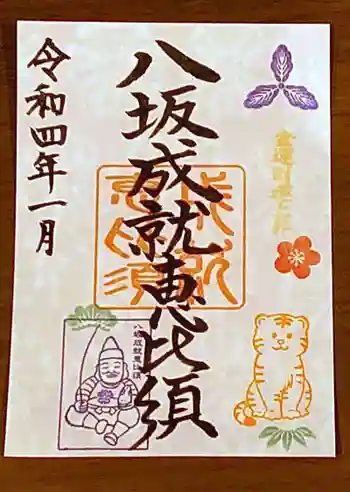 八坂成就恵比須
令和四年一月
成就
恵比須
八坂成就恵比須